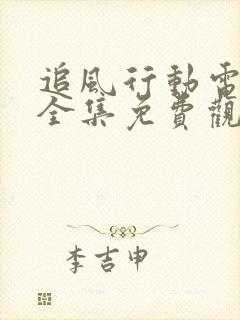 追風行動電
全集免費觀
李吉申